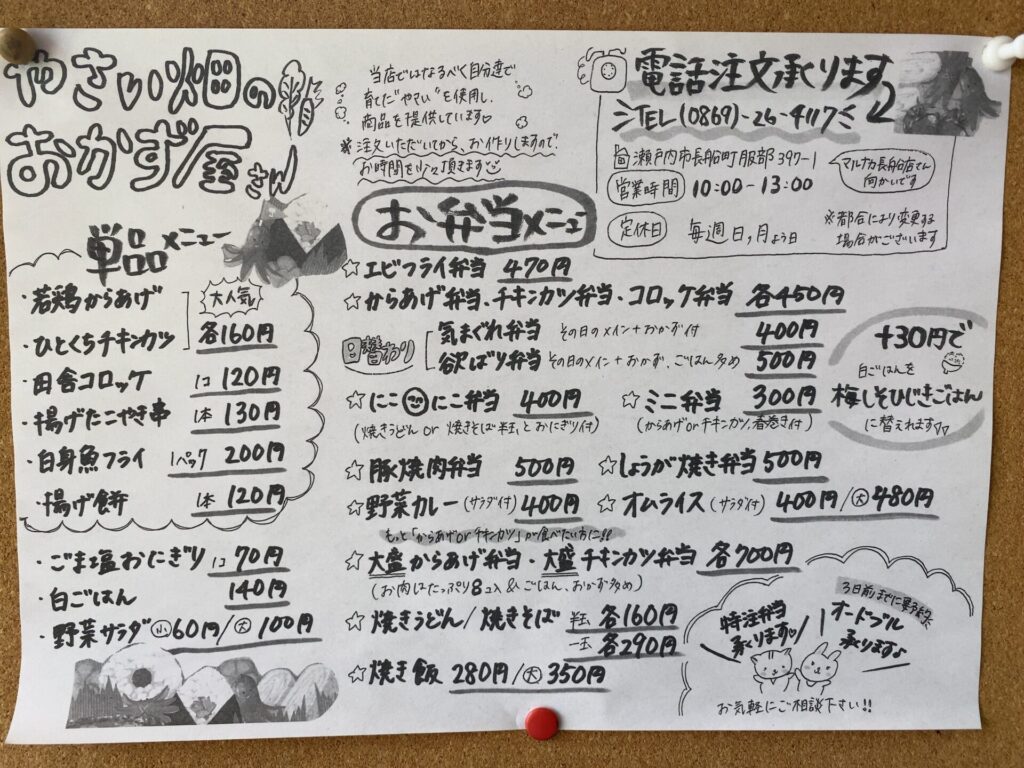 やさい畑の
おかず屋さん
当店ではなるべく自分達で
育てた"やさい"を使用し、
商品を提供しています♡
※注文いただいてから、お作りしますので、
お時間を少々頂きます
電話注文承ります
TEL(0869)-26-4117
瀬戸内市長船町服部397-1
マルナカ長船店さん
向かいです
営業時間 10:00-13:00
定休日 毎週日,月よう日
※都合により変更する
場合がございます
単品メニュー
・若鶏からあげ
・ひとくちチキンカツ
大人気
各160円
・田舎コロッケ 1コ 120円
・揚げたこやき串 1本 130円
・白身魚フライ 1パック 200円
・揚げ餅 1本 120円
・ごま塩おにぎり 1コ 70円
・白ごはん 140円
・野菜サラダ 小 60円/大 100円
お弁当メニュー
☆エビフライ弁当 470円
☆からあげ弁当、チキンカツ弁当、コロッケ弁当 各450円
日替わり
気まぐれ弁当 その日のメイン+おかず付 400円
欲ばり弁当 その日のメイン+おかず、ごはん多め 500円
☆にこにこ弁当 400円
(焼きうどん or 焼きそば半玉とおにぎり付)
☆ミニ弁当 300円
(からあげorチキンカツ、春巻き付)
+30円で
白ごはんを
梅しそひじきごはん
に替えれます♡♡
☆豚焼肉弁当 500円
☆しょうが焼き弁当 500円
☆野菜カレー(サラダ付) 400円
☆オムライス(サラダ付) 400円/大 480円
もっと「からあげorチキンカツ」が食べたい方に!!
☆大盛からあげ弁当・大盛チキンカツ弁当 各700円
(お肉はたっぷり8コ入&ごはん、おかず多め)
☆焼きうどん/焼きそば 半玉 各160円
一玉 各290円
☆焼き飯 280円/大 350円
特注弁当
承ります♡
3日前までに要予約
オードブル
承ります♪
お気軽にご相談下さい!!